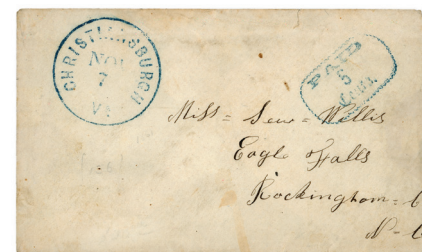 CHRISTIANSBURGH
NOV
7
VA
PAID
5
Cents
Miss = Sew = Willis
Eagle Falls
Rockingham = C
N - C